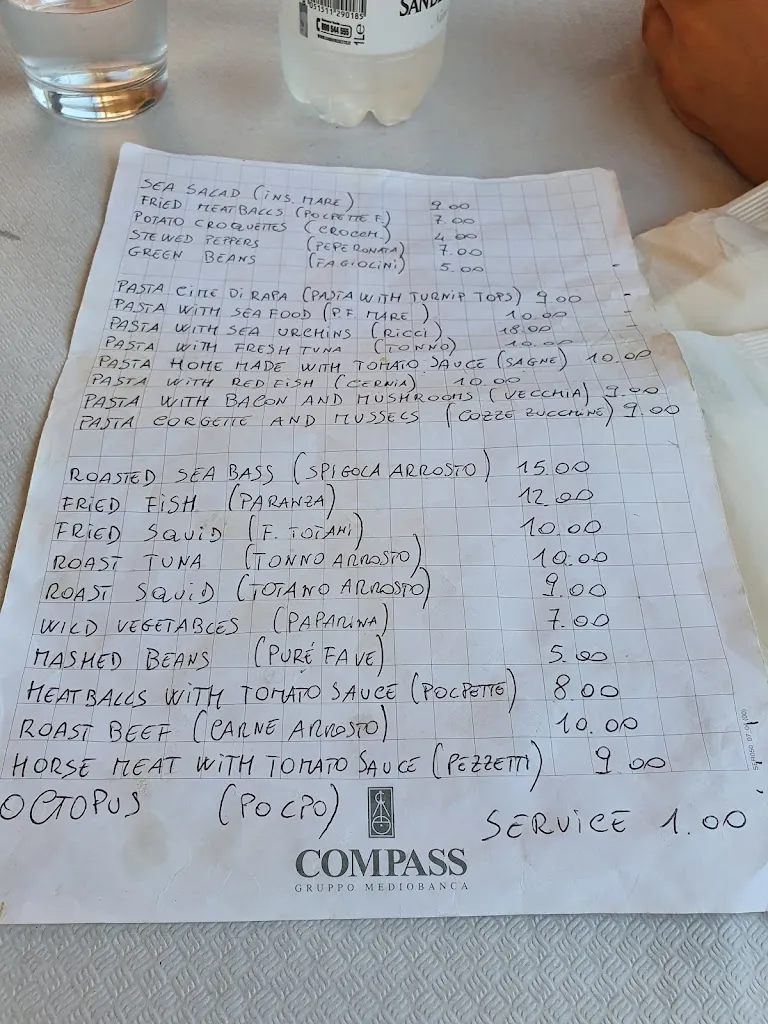 8051511290185
800 544 555
1Le
SAN
SEA SALAD (INS. MARE) 9.00
FRIED MEATBALLS (POLPETTE F.) 7.00
POTATO CROQUETTES (CROCCH.) 4.00
STEWED PEPPERS (PEPERONATA) 7.00
GREEN BEANS (FAGIOLINI) 5.00
PASTA CIME DI RAPA (PASTA WITH TURNIP TOPS) 9.00
PASTA WITH SEA FOOD (P.F. MARE) 10.00
PASTA WITH SEA URCHINS (RICCI) 18.00
PASTA WITH FRESH TUNA (TONNO) 10.00
PASTA HOME MADE WITH TOMATO SAUCE (SAGNE) 10.00
PASTA WITH RED FISH (CERNIA) 10.00
PASTA WITH BACON AND MUSHROOMS (VECCHIA) 9.00
PASTA CORGETTE AND MUSSELS (COZZE ZUCCHINE) 9.00
ROASTED SEA BASS (SPIGOLA ARROSTO) 15.00
FRIED FISH (PARANZA) 12.00
FRIED SQUID (F. TOTANI) 10.00
ROAST TUNA (TONNO ARROSTO) 10.00
ROAST SQUID (TOTANO ARROSTO) 9.00
WILD VEGETABLES (PAPARINA) 7.00
MASHED BEANS (PURÉ FAVE) 5.00
MEATBALLS WITH TOMATO SAUCE (POLPETTE) 8.00
ROAST BEEF (CARNE ARROSTO) 10.00
HORSE MEAT WITH TOMATO SAUCE (PEZZETTI) 9.00
OCTOPUS (POLPO) SERVICE 1.00
COMPASS
GRUPPO MEDIOBANCA